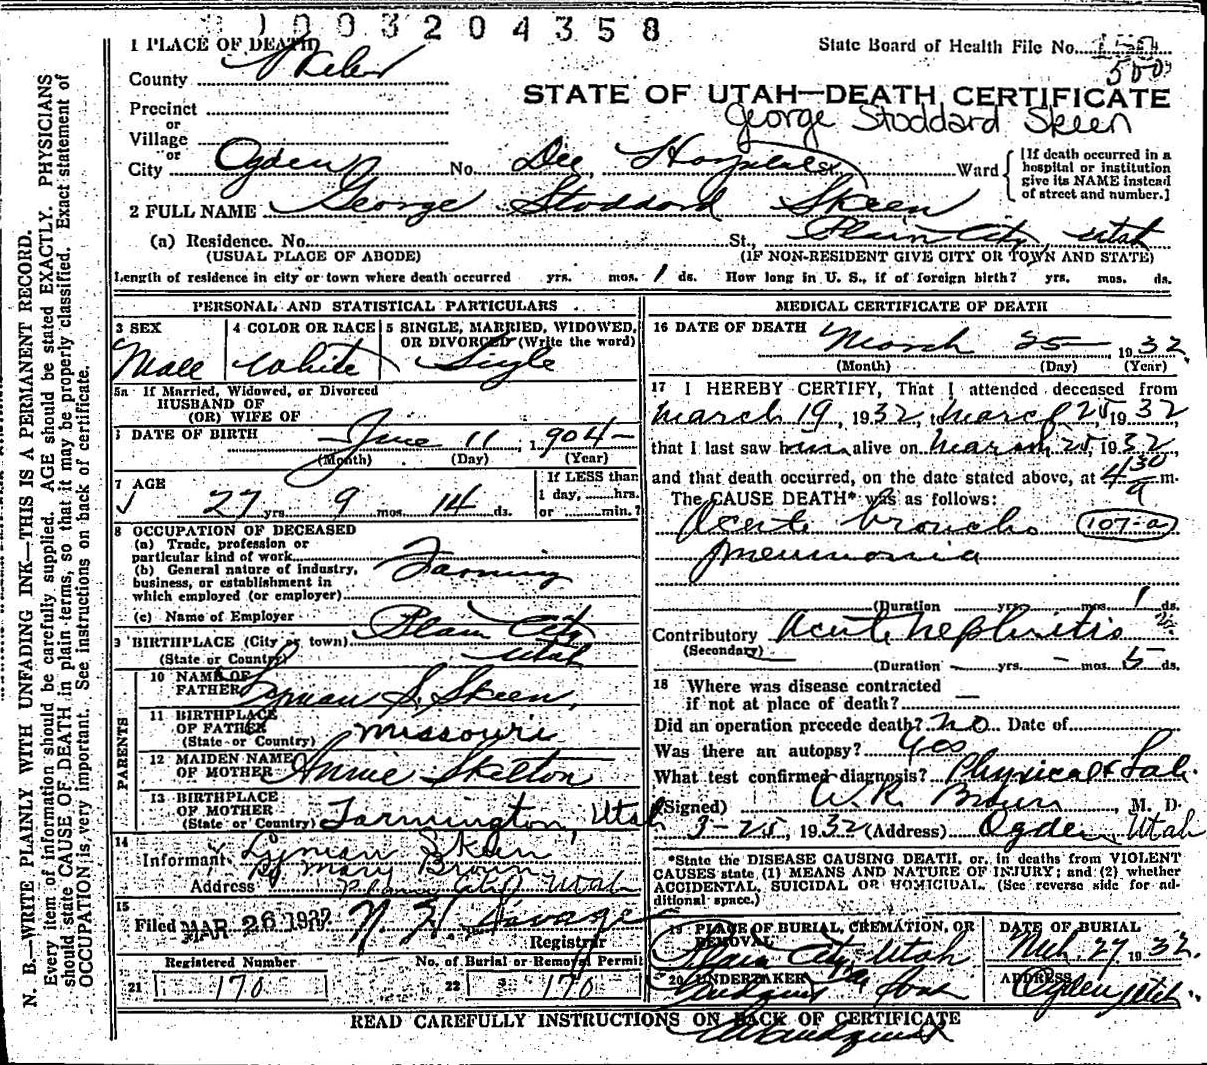 1003204358
1 PLACE OF DEATH
State Board of Health File No.
County Weber
500
STATE OF UTAH—DEATH CERTIFICATE
Precinct
or
Village
or
George Stoddard Skeen
City Ogden No. Dee Hospital St. Ward
[If death occurred in a
hospital or institution
give its NAME instead
of street and number.]
2 FULL NAME George Stoddard Skeen
(a) Residence. No. St., Plain City, Utah
(USUAL PLACE OF ABODE) (IF NON-RESIDENT GIVE CITY OR TOWN AND STATE)
Length of residence in city or town where death occurred yrs. mos. 1 ds. How long in U. S., if of foreign birth? yrs. mos. ds.
PERSONAL AND STATISTICAL PARTICULARS
3 SEX
Male
4 COLOR OR RACE
White
5 SINGLE, MARRIED, WIDOWED,
OR DIVORCED (Write the word)
Single
5a If Married, Widowed, or Divorced
HUSBAND OF
(OR) WIFE OF
DATE OF BIRTH June 11 1904
(Month) (Day) (Year)
7 AGE
27 yrs. 9 mos. 14 ds.
If LESS than
1 day, hrs.
or min.?
8 OCCUPATION OF DECEASED
(a) Trade, profession or
particular kind of work
(b) General nature of industry,
business, or establishment in
which employed (or employer)
Farming
(c) Name of Employer
9 BIRTHPLACE (City or town) Plain City
(State or Country) Utah
PARENTS
10 NAME OF
FATHER Lyman S. Skeen
11 BIRTHPLACE
OF FATHER
(State or Country) Missouri
12 MAIDEN NAME
OF MOTHER Annie Skelton
13 BIRTHPLACE
OF MOTHER
(State or Country) Farmington, Utah
14
Informant Lyman Skeen
By Mary Brown
Address Plain City Utah
15
Filed MAR 26 1932 N. H. Savage
Registrar
Registered Number No. of Burial or Removal Permit
21 170 22 170
MEDICAL CERTIFICATE OF DEATH
16 DATE OF DEATH
March 25 1932
(Month) (Day) (Year)
17 I HEREBY CERTIFY, That I attended deceased from
March 19, 1932, to March 25, 1932
that I last saw him alive on March 25, 1932,
and that death occurred, on the date stated above, at 4 30 a m.
The CAUSE DEATH* was as follows:
Acute broncho 107-a
pneumonia
(Duration yrs. mos. 1 ds.
Contributory Acute Nephritis
(Secondary)
(Duration — yrs. — mos. 5 ds.
18 Where was disease contracted
if not at place of death? —
Did an operation precede death? no Date of
Was there an autopsy? Yes
What test confirmed diagnosis? Physical & Lab.
(Signed) W.R. Brown, M. D.
3-25, 1932 (Address) Ogden, Utah
*State the DISEASE CAUSING DEATH, or, in deaths from VIOLENT
CAUSES state (1) MEANS AND NATURE OF INJURY; and (2) whether
ACCIDENTAL, SUICIDAL OR HOMICIDAL. (See reverse side for ad-
ditional space.)
19 PLACE OF BURIAL, CREMATION, OR
REMOVAL
Plain City, Utah
DATE OF BURIAL
Mch. 27 1932.
20 UNDERTAKER
Lindquist
ADDRESS
Ogden, Utah
READ CAREFULLY INSTRUCTIONS ON BACK OF CERTIFICATE
N. B.—WRITE PLAINLY WITH UNFADING INK—THIS IS A PERMANENT RECORD.
Every item of information should be carefully supplied. AGE should be stated EXACTLY. PHYSICIANS
should state CAUSE OF DEATH in plain terms, so that it may be properly classified. Exact statement of
OCCUPATION is very important. See instructions on back of certificate.